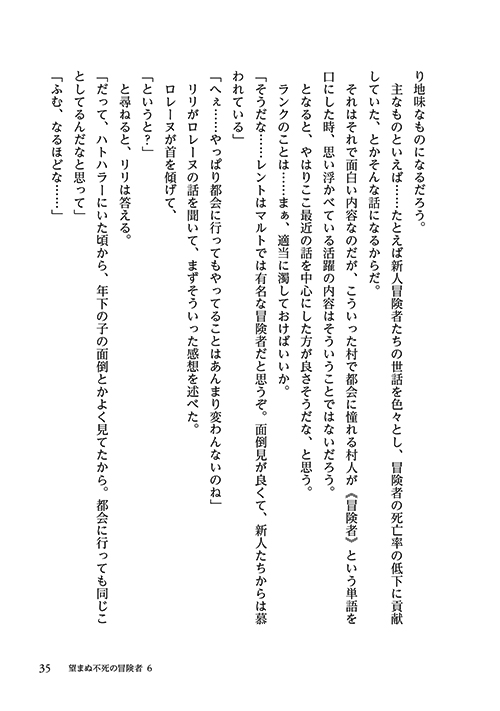 り地味なものになるだろう。
主なものといえば……たとえば新人冒険者たちの世話を色々とし、冒険者の死亡率の低下に貢献
していた、とかそんな話になるからだ。
それはそれで面白い内容なのだが、こういった村で都会に憧れる村人が《冒険者》という単語を
口にした時、思い浮かべている活躍の内容はそういうことではないだろう。
となると、やはりここ最近の話を中心にした方が良さそうだな、と思う。
ランクのことは……まぁ、適当に濁しておけばいいか。
「そうだな……レントはマルトでは有名な冒険者だと思うぞ。面倒見が良くて、新人たちからは慕
われている」
「へぇ……やっぱり都会に行ってもやってることはあんまり変わんないのね」
リリがロレーヌの話を聞いて、まずそういった感想を述べた。
ロレーヌが首を傾げて、
「というと？」
と尋ねると、リリは答える。
「だって、ハトハラーにいた頃から、年下の子の面倒とかよく見てたから。都会に行っても同じこ
としてるんだなと思って」
「ふむ、なるほどな……」
35 望まぬ不死の冒険者 6